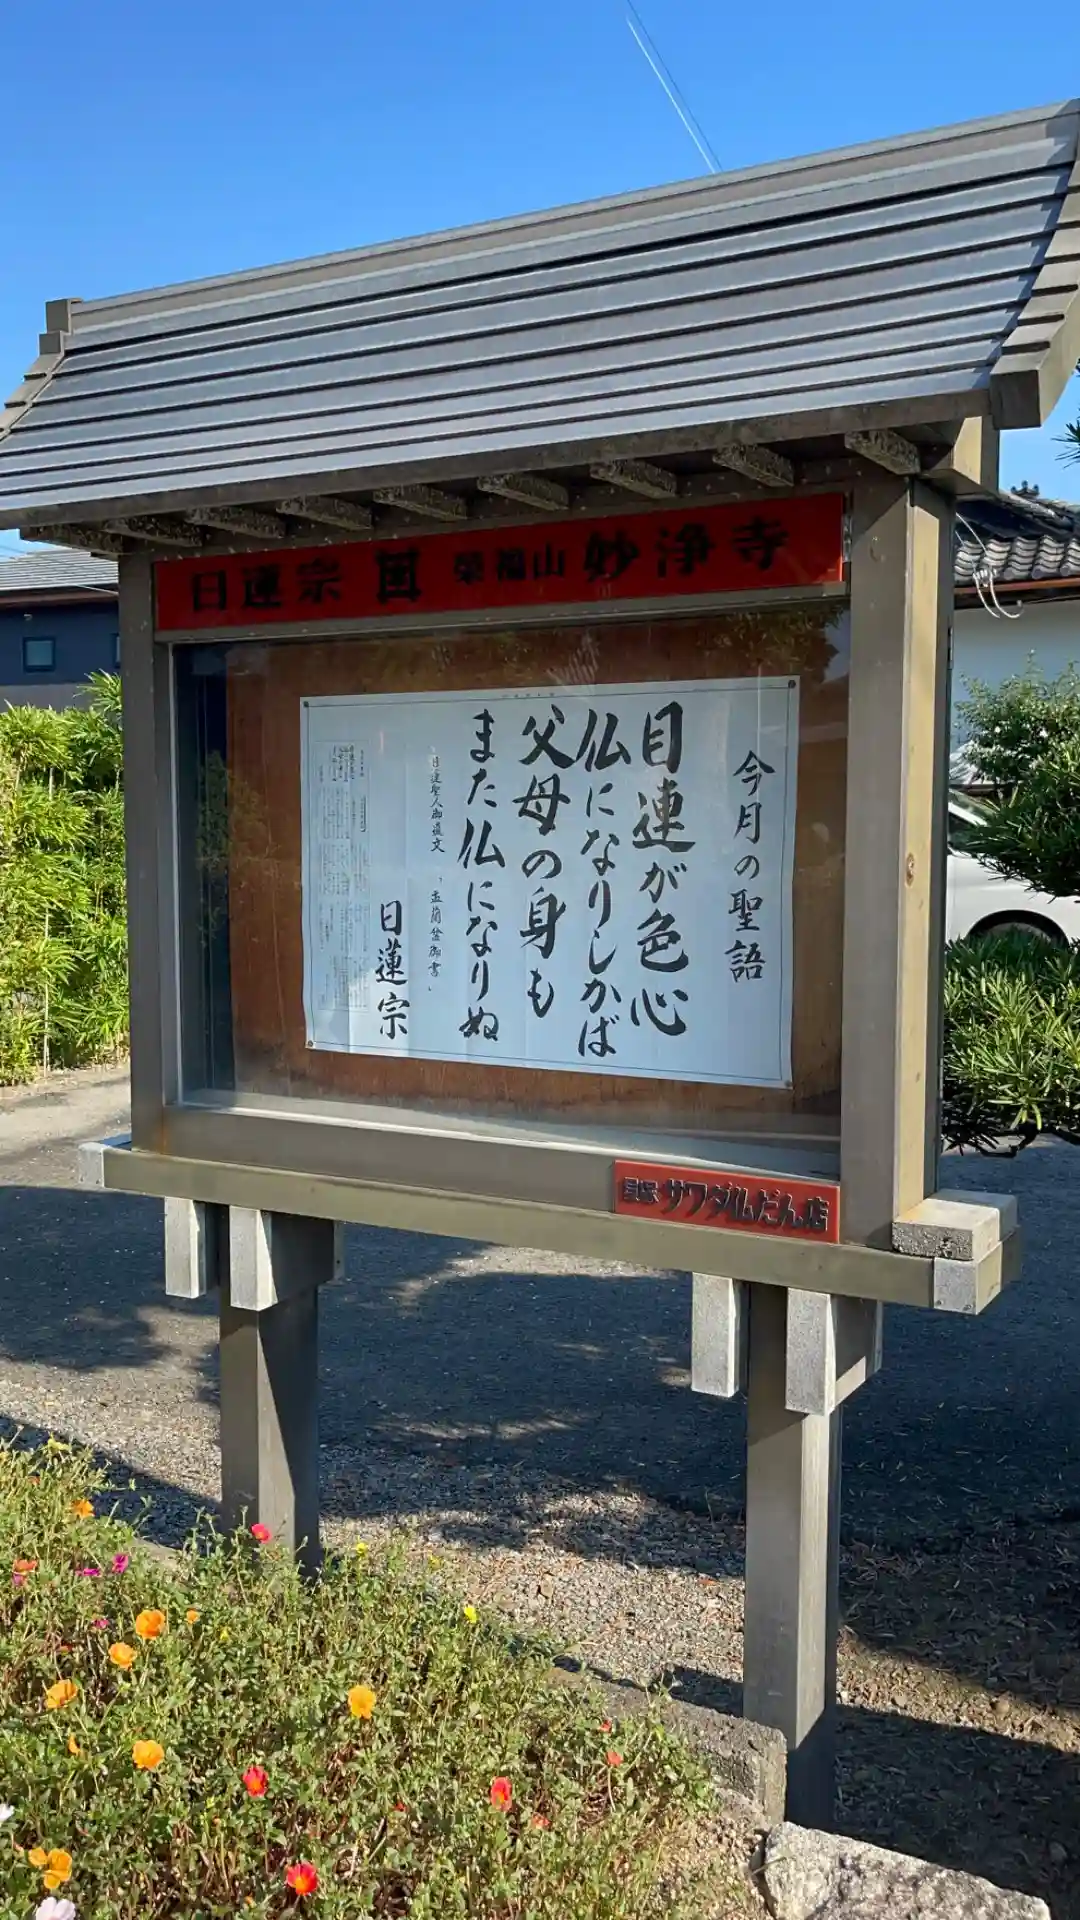 日蓮宗 榮福山 妙浄寺
今月の聖語
目連が色心
仏になりしかば
父母の身も
また仏になりぬ
日蓮聖人御遺文「盂蘭盆御書」
日蓮宗
サワダ仏だん店